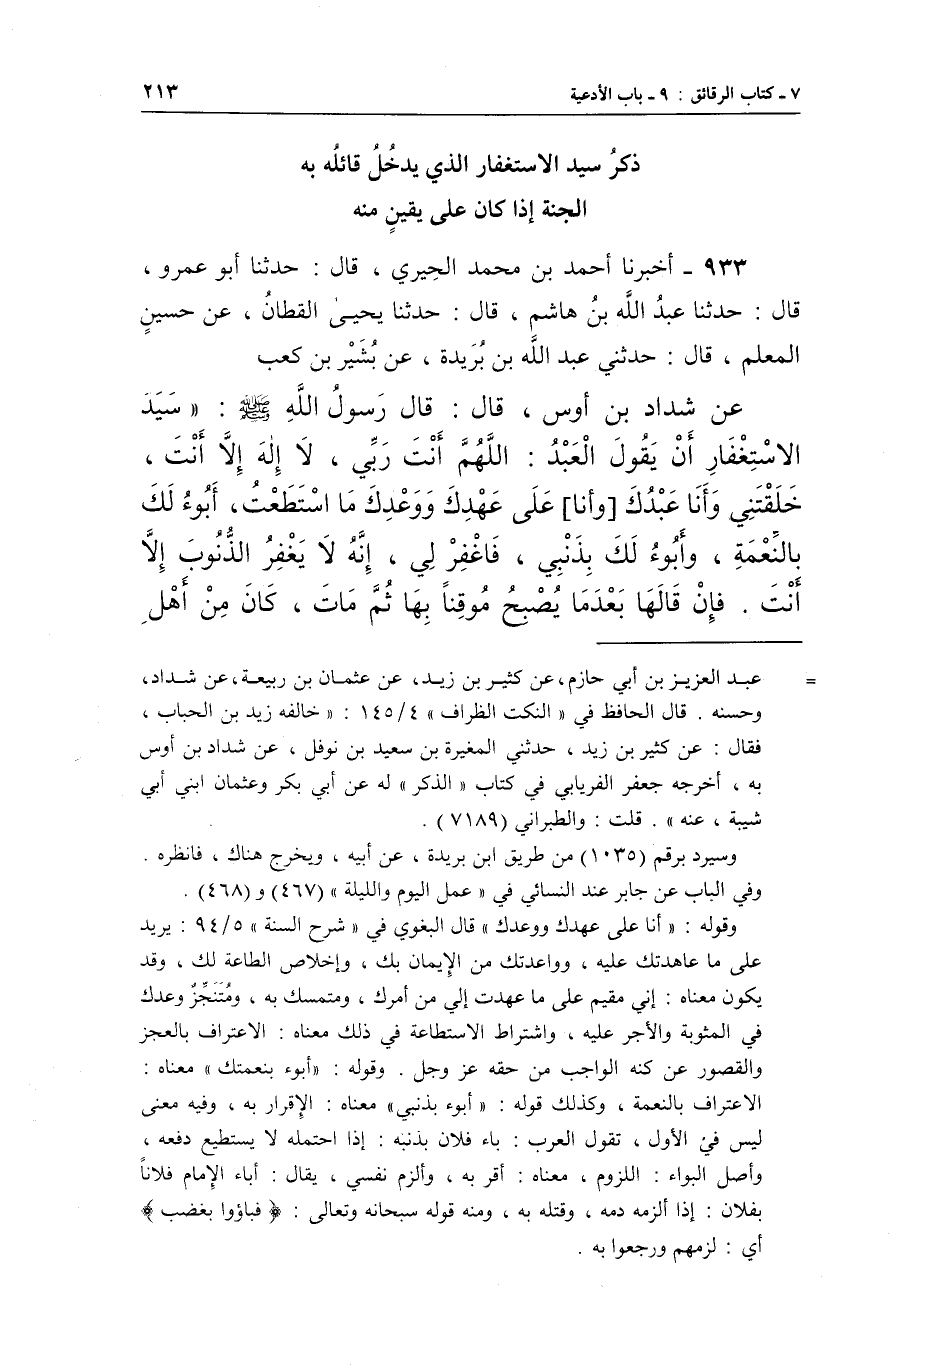 ٧ - كتاب الرقائق : ٩ - باب الأدعية ٢١٣
ذكرُ سيد الاستغفار الذي يدخُلُ قائلُه به
الجنة إذا كان على يقينٍ منه
٩٣٣ - أخبرنا أحمد بن محمد الحِيري ، قال : حدثنا أبو عمرو ،
قال : حدثنا عبدُ اللَّه بنُ هاشم ، قال : حدثنا يحيىٰ القطانُ ، عن حسينٍ
المعلم ، قال : حدثني عبد اللَّه بن بُرَيدة ، عن بُشَيْر بن كعب
عن شداد بن أوس ، قال : قال رَسولُ اللَّهِ ﷺ : « سَيِّدَ
الاسْتِغْفَارِ أَنْ يَقُولَ الْعَبْدُ : اللَّهُمَّ أَنْتَ رَبِّي ، لَا إِلٰهَ إِلاَّ أَنْتَ ،
خَلَقْتَنِي وَأَنَا عَبْدُكَ [وأنا] عَلَى عَهْدِكَ وَوَعْدِكَ مَا اسْتَطَعْتُ، أَبُوءُ لَكَ
بالنِّعْمَةِ ، وأَبُوءُ لَكَ بِذَنْبِي ، فَاغْفِرْ لِي ، إِنَّهُ لَا يَغْفِرُ الذُّنُوبَ إِلاَّ
أَنْتَ . فإِنْ قَالَهَا بَعْدَمَا يُصْبِحُ مُوقِناً بِهَا ثُمَّ مَاتَ ، كَانَ مِنْ أَهْلِ
= عبد العزيز بن أبي حازم، عن كثير بن زيد، عن عثمان بن ربيعة، عن شداد،
وحسنه . قال الحافظ في « النكت الظراف » ١٤٥/٤ : « خالفه زيد بن الحباب ،
فقال : عن كثير بن زيد ، حدثني المغيرة بن سعيد بن نوفل ، عن شداد بن أوس
به ، أخرجه جعفر الفريابي في كتاب « الذكر » له عن أبي بكر وعثمان ابني أبي
شيبة ، عنه » . قلت : والطبراني (٧١٨٩) .
وسيرد برقم (١٠٣٥) من طريق ابن بريدة ، عن أبيه ، ويخرج هناك ، فانظره .
وفي الباب عن جابر عند النسائي في « عمل اليوم والليلة » (٤٦٧) و (٤٦٨) .
وقوله : « أنا على عهدك ووعدك » قال البغوي في « شرح السنة » ٩٤/٥ : يريد
على ما عاهدتك عليه ، وواعدتك من الإيمان بك ، وإخلاص الطاعة لك ، وقد
يكون معناه : إني مقيم على ما عهدت إلي من أمرك ، ومتمسك به ، ومُتَنَجِّزٌ وعدك
في المثوبة والأجر عليه ، واشتراط الاستطاعة في ذلك معناه : الاعتراف بالعجز
والقصور عن كنه الواجب من حقه عز وجل . وقوله : «أبوء بنعمتك » معناه :
الاعتراف بالنعمة ، وكذلك قوله : « أبوء بذنبي» معناه : الإقرار به ، وفيه معنى
ليس في الأول ، تقول العرب : باء فلان بذنبه : إذا احتمله لا يستطيع دفعه ،
وأصل البواء : اللزوم ، معناه : أقر به ، وألزم نفسي ، يقال : أباء الإمام فلاناً
بفلان : إذا ألزمه دمه ، وقتله به ، ومنه قوله سبحانه وتعالى : ﴿ فباؤوا بغضب ﴾
أي : لزمهم ورجعوا به .